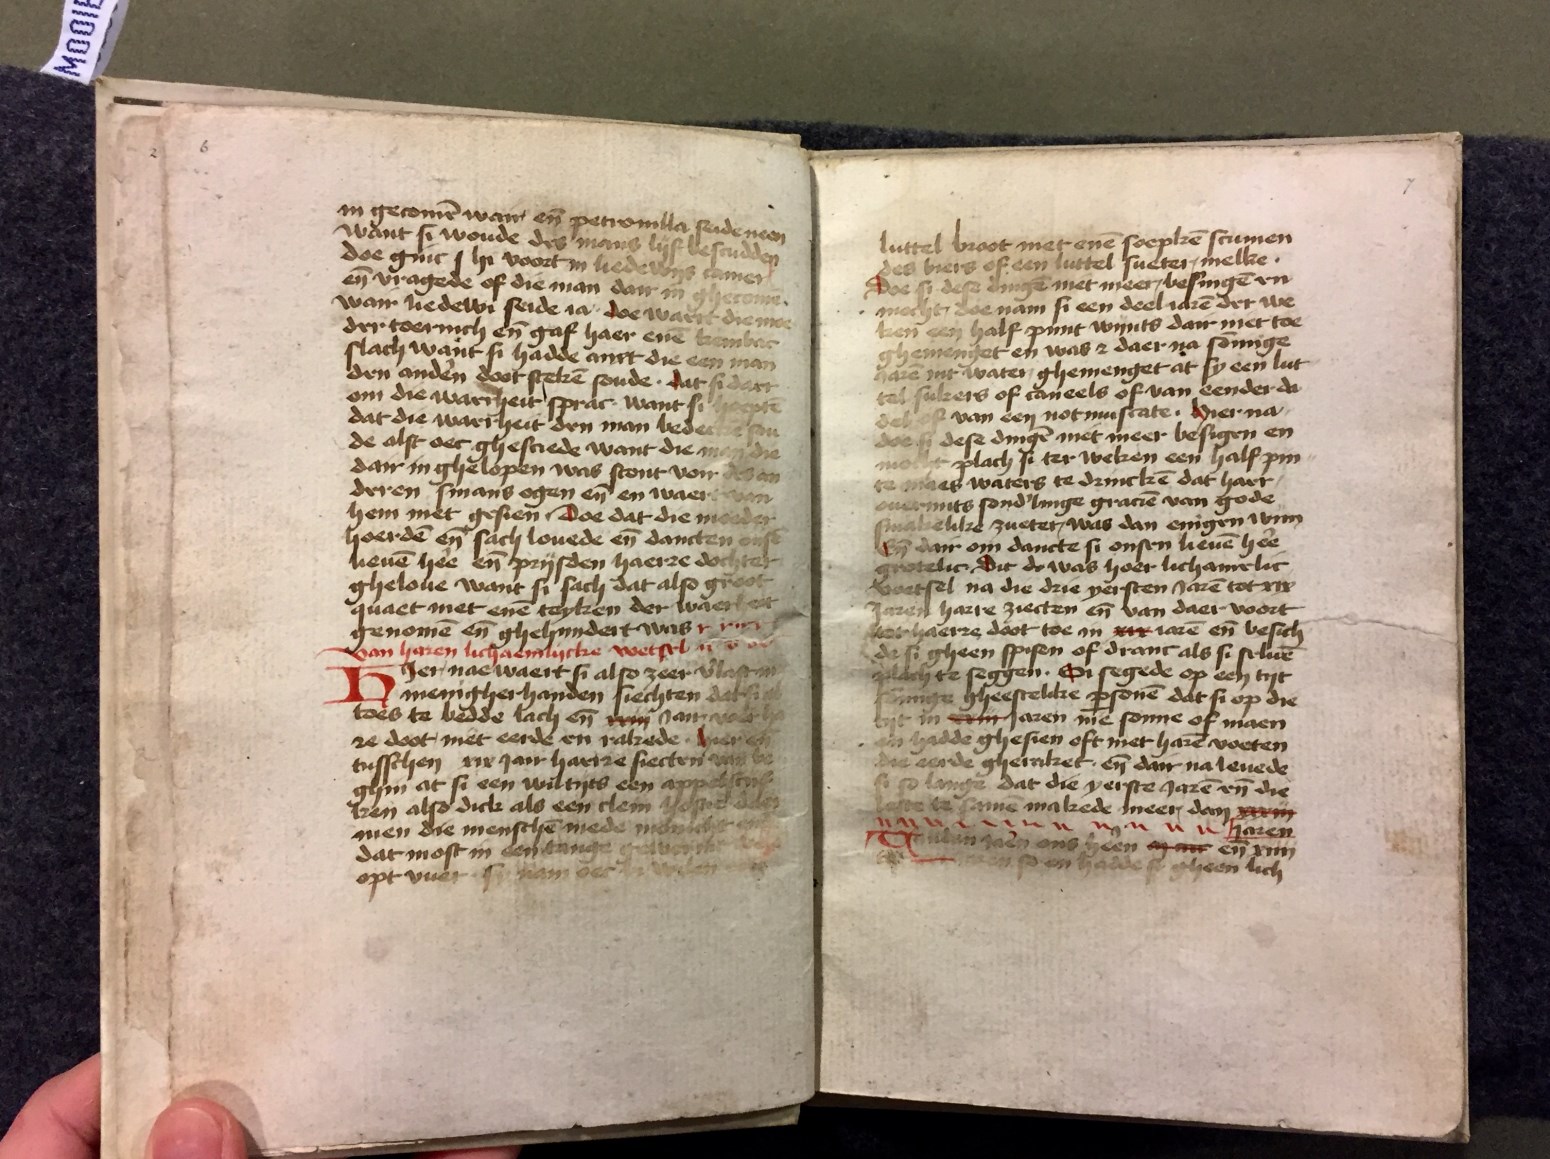 MOOIE
2 6
in gecomē wair eñ petronilla seide neen
want si woude des mans lijf bescudden
doe ginc hi voort in liedewijs camer
eñ vragede of die man dair in ghecome
wair liedewi seide ia. Doe wart die moe
der toernich eñ gaf haer enē
slach want si hadde anxt die een man
den andēn doot stekē soude. Dat si dair
om die warrheit sprac. want si hoepte
dat die warrheit den man bedecken sou
de alst oec ghesciede want die man die
dair in ghelopen was stont voir des an
deren smans ogen eñ en waert van
hem niet gesien. Doe dat die moeder
hoerdē eñ sach louede eñ dancten onsē
lieuē hēe eñ prijsden haerre dochter
gheloue want si sach dat also groot
quaet met enē teyken der waerheit
genomē eñ ghehindert was
Van haren lichaemlijcke voetsel
Hier nae waert si also zeer
menigherhanden siechten dat si al
toes te bedde lach eñ xxxiij iair voer ha
re doot niet eerde en rakede. Hier en
tusschen xix jair harre siecten van be
ghin at si een wiltijts een appelscijf
ken also dick als een clein hostie
men die menschē mede
dat most in een tange
opt vuer. Si nam oec bi wilen
7
luttel broot met enē soepkē scumen
des biers of een luttel sueter melke.
Doe si dese dingē niet meer besingē en
mocht doe nam si een deel iarē der we
ken een half pinnt wijnts dair met toe
ghemenget en was daer na somige
iarē mt water ghemenget at sy een lut
tel sukers of caneels of van eender da
del of van een notmuscate. Hier na
doe si dese dingē niet meer besigen en
mocht plach si ter weken een half pin
te maes waters te drincken dat harr
ouermits sond'linge gracie van gode
smakelike zueter was dan enigen wijn
Eñ dair om dancte si onsen lieuē hēe
grotelic. Dit was hoer lichamelic
voetsel na die drie yersten jarē tot xix
jaren harre ziecten eñ van daer voort
tot haerre doot toe in xix iarē eñ besich
de si gheen spisen of dranc als si seluē
plach te seggen. Si segede op een tijt
somige gheestelike psonē dat si op die
tijt in jaren nie sonne of maen
en hadde ghesien oft met harē voeten
die eerde gheraket. eñ dair na leuede
si so lange dat die yerste jarē eñ die
leste te samē makede meer dan xxxiij
jaren
jaēn ons heen eñ xiiij
so en hadde si gheen lich